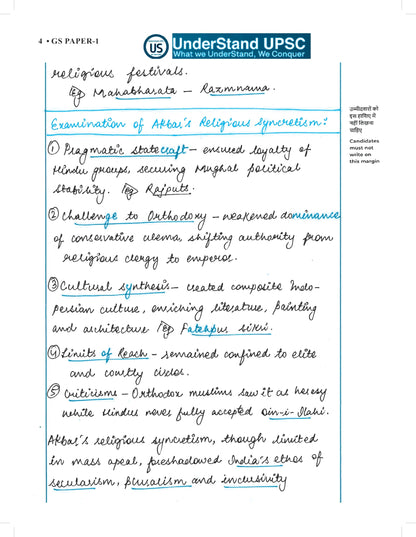 4 • GS PAPER-1
US UnderStand UPSC
What we UnderStand, We Conquer
religious festivals.
Eg Mahabharata – Razmnama.
Examination of Akbar's Religious Syncretism:
① Pragmatic statecraft – ensured loyalty of
Hindu groups, securing Mughal political
stability. Eg Rajputs.
② Challenge to Orthodoxy – weakened dominance
of conservative ulema, shifting authority from
religious clergy to emperor.
③ Cultural synthesis – created composite Indo-
Persian culture, enriching literature, painting
and architecture Eg Fatehpur sikri.
④ Limits of Reach – remained confined to elite
and courtly circles.
⑤ Criticisms – Orthodox muslims saw it as heresy
while Hindus never fully accepted Din-i-Ilahi.
Akbar's religious syncretism, though limited
in mass apeal, foreshadowed India's ethos of
secularism, pluralism and inclusivity
उम्मीदवारों को
इस हाशिए में
नहीं लिखना
चाहिए
Candidates
must not
write on
this margin